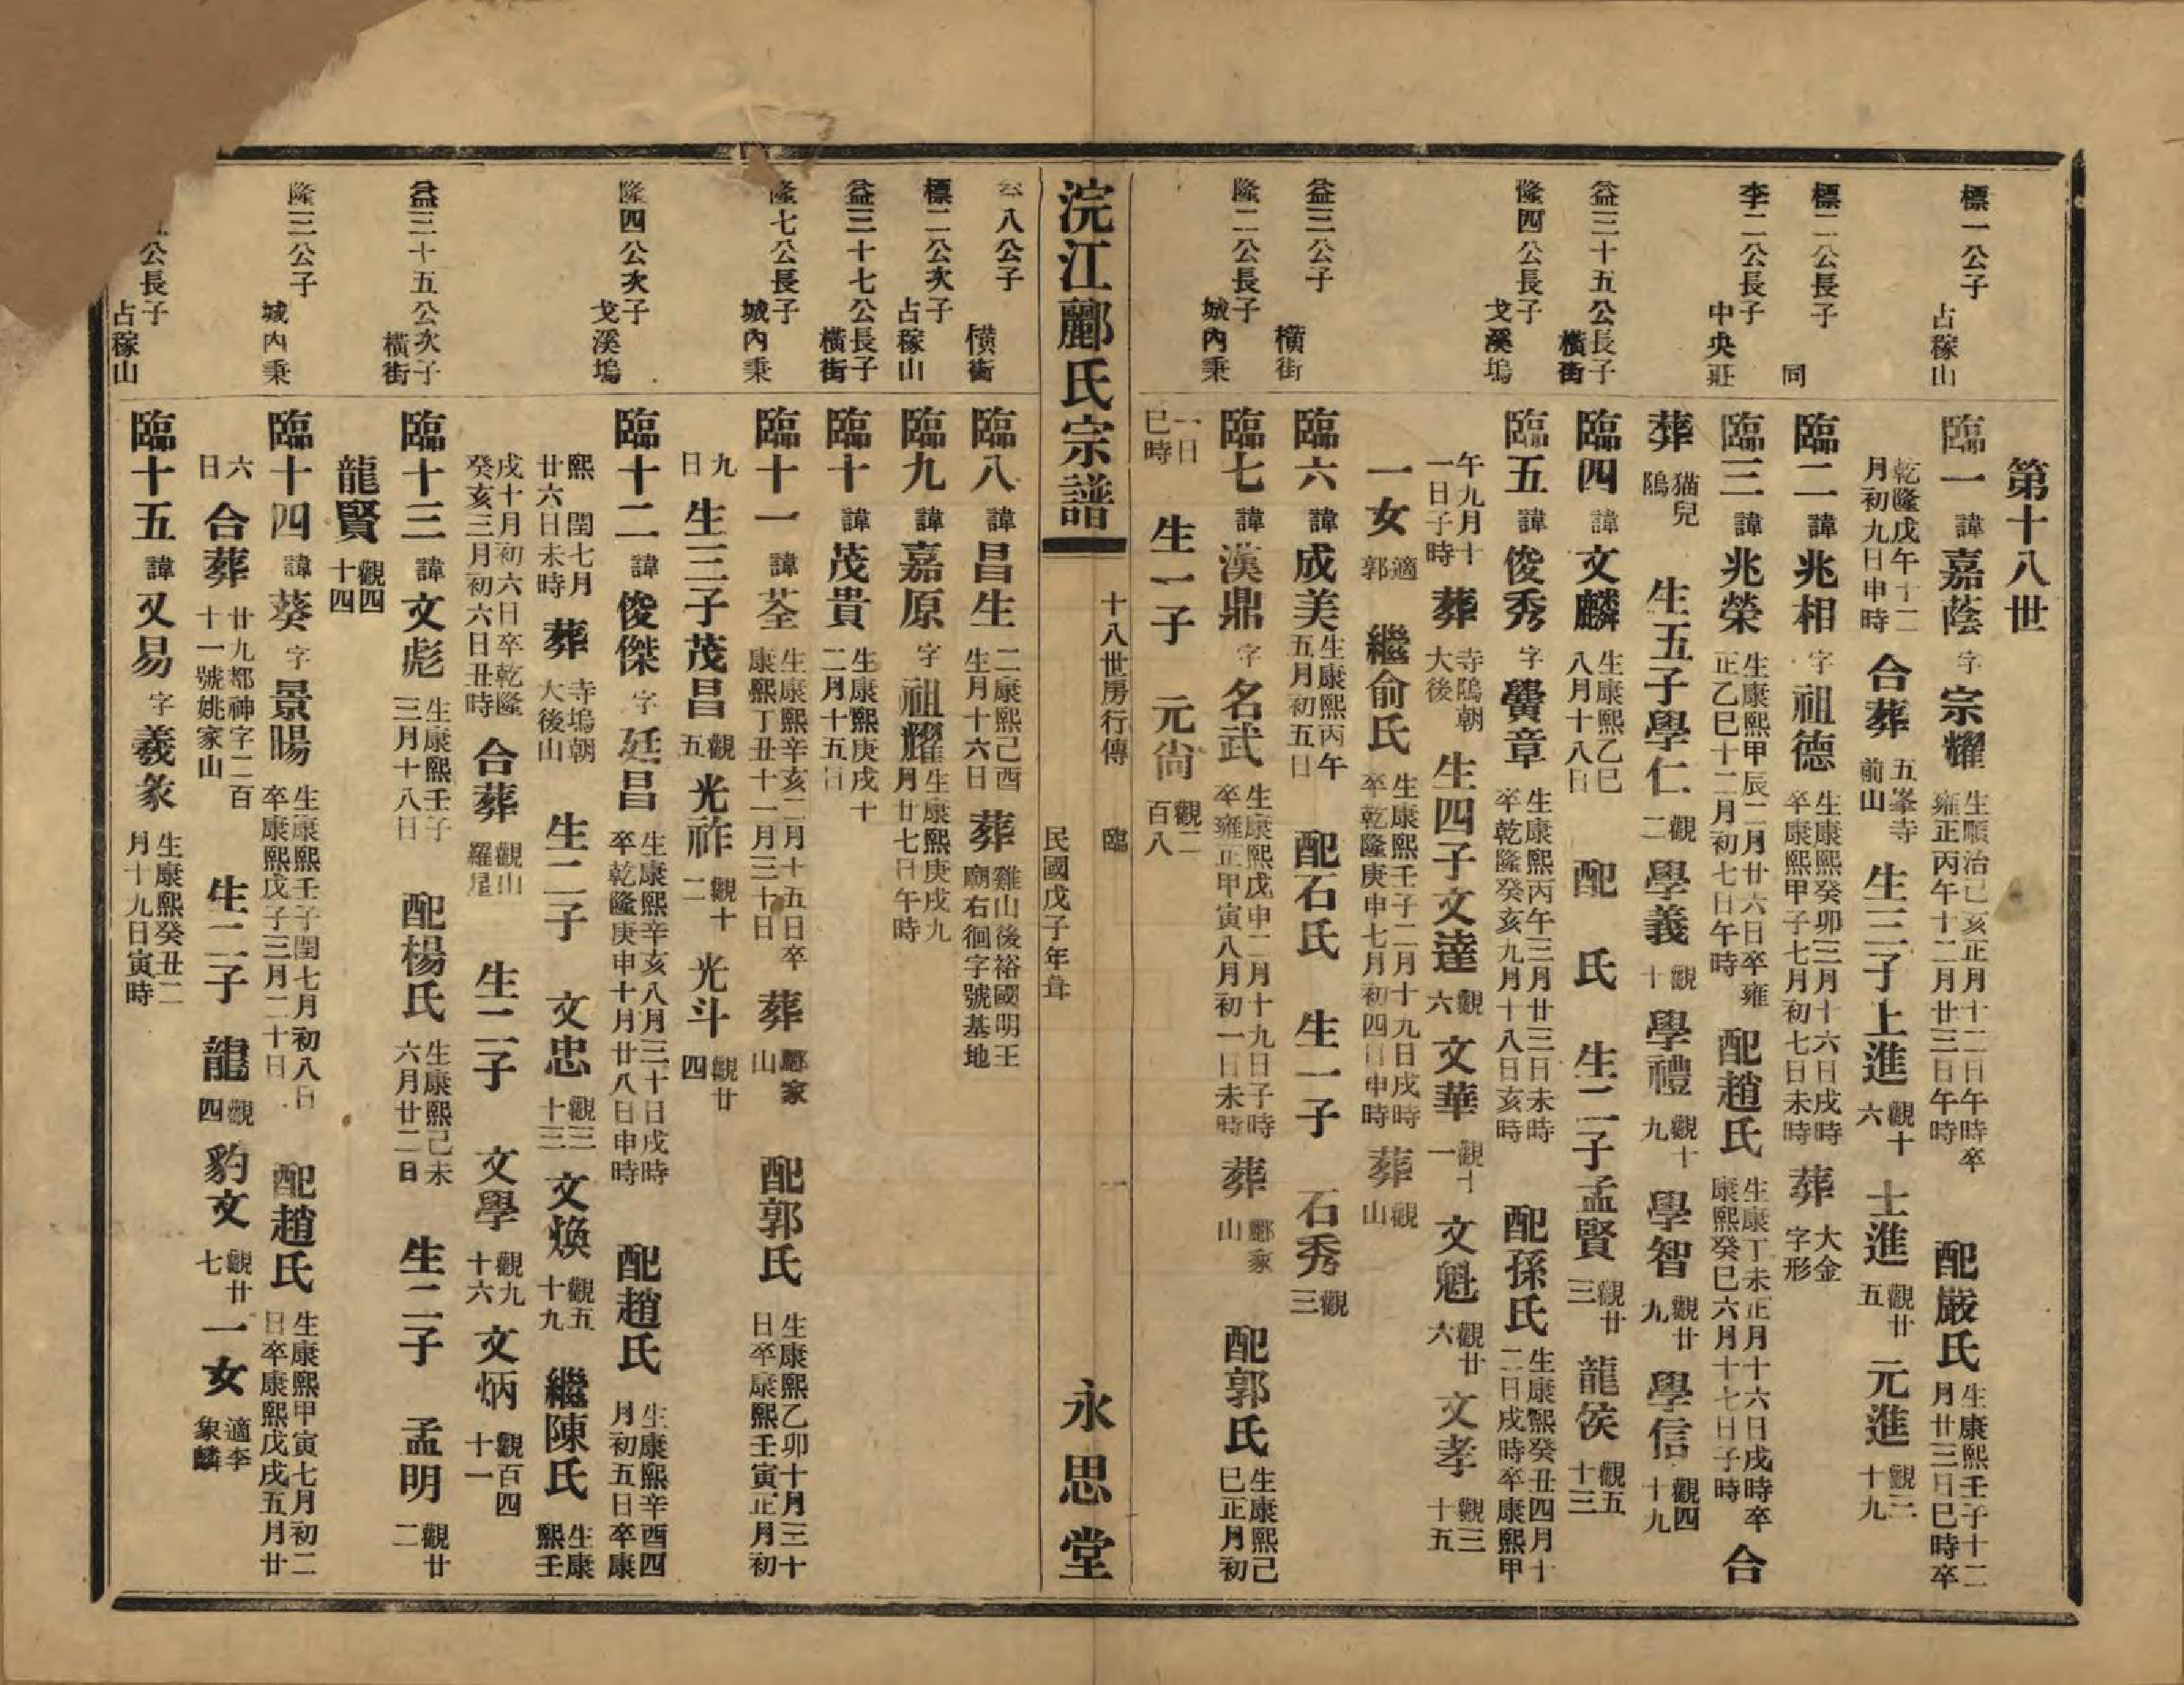 第十八世
標一公子 占稼山
臨一 諱 嘉蔭 字 宗耀 生順治己亥正月十二日午時卒雍正丙午十二月廿三日午時 配嚴氏 生康熙壬子十二月廿三日巳時卒
乾隆戊午十二月初九日申時 合葬 五峯寺前山 生三子上進 觀十六 士進 觀廿五 元進 觀三十九
標二公長子 同
臨二 諱 兆相 字 祖德 生康熙癸卯三月十六日戌時卒康熙甲子七月初七日未時 葬 大金字形
李二公長子 中央莊
臨三 諱 兆榮 生康熙甲辰二月廿六日卒雍正乙巳十二月初七日午時 配趙氏 生康丁未正月十六日戌時卒康熙癸巳六月十七日子時 合
葬 猫兒隖 生五子學仁 觀二 學義 觀十 學禮 觀十九 學智 觀廿九 學信 觀四十九
益三十五公長子 橫街
臨四 諱 文麟 生康熙乙巳八月十八日 配 氏 生二子孟賢 觀廿三 龍侯 觀五十三
隆四公長子 戈溪塢
臨五 諱 俊秀 字 黌章 生康熙丙午三月廿三日未時卒乾隆癸亥九月十八日亥時 配孫氏 生康熙癸丑四月十二日戌時卒康熙甲
午九月十一日子時 葬 寺隖朝大後 生四子文達 觀六 文華 觀十一 文魁 觀廿六 文孝 觀三十五
一女 適郭 繼俞氏 生康熙壬子二月十九日戌時卒乾隆庚申七月初四日申時 葬 觀山
益三公子 橫街
臨六 諱 成美 生康熙丙午五月初五日 配石氏 生一子 石秀 觀三
隆二公長子 城內秉
臨七 諱 漢鼎 字 名武 生康熙戊申二月十九日子時卒雍正甲寅八月初一日未時 葬 酈家山 配郭氏 生康熙己巳正月初
一日巳時 生一子 元尙 觀二百八
浣江酈氏宗譜 十八世房行傳 臨 一 民國戊子年葺 永思堂
八公子 橫街
臨八 諱 昌生 康熙己酉二月十六日生 葬 雞山後裕國明王廟右徊字號基地
標二公次子 占稼山
臨九 諱 嘉原 字 祖耀 生康熙庚戌九月廿七日午時
益三十七公長子 橫街
臨十 諱 茂貴 生康熙庚戌十二月十五日
隆七公長子 城內秉
臨十一 諱 荃 生康熙辛亥二月十五日卒康熙丁丑十一月三十日 葬 酈家山 配郭氏 生康熙乙卯十月三十日卒康熙壬寅正月初
九日 生三子茂昌 觀五 光祚 觀十二 光斗 觀廿四
隆四公次子 戈溪塢
臨十二 諱 俊傑 字 廷昌 生康熙辛亥八月三十日戌時卒乾隆庚申十月廿八日申時 配趙氏 生康熙辛酉四月初五日卒康
熙 閏七月廿六日未時 葬 寺塢朝大後山 生二子 文忠 觀三十三 文煥 觀五十九 繼陳氏 生康熙壬
戌十月初六日卒乾隆癸亥三月初六日丑時 合葬 觀山羅星 生二子 文學 觀九十六 文炳 觀百四十一
益三十五公次子 橫街
臨十三 諱 文彪 生康熙壬子三月十八日 配楊氏 生康熙己未六月廿二日 生二子 孟明 觀廿二
龍賢 觀四十四
隆三公子 城內秉
臨十四 諱 葵 字 景暘 生康熙壬子閏七月初八日卒康熙戊子三月二十日 配趙氏 生康熙甲寅七月初二日卒康熙戊戌五月廿
六日 合葬 廿九都神字二百十一號姚家山 生二子 龍 觀四 豹文 觀廿七 一女 適李象麟
公長子 占稼山
臨十五 諱 又易 字 義彖 生康熙癸丑二月十九日寅時